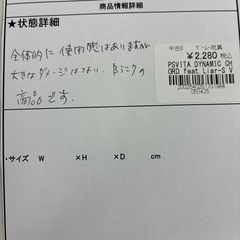 商品情報詳細
★状態詳細
全体的に使用感はありますが
大きなダメージはなく、良ランクの
商品です。
中古B ゲーム・玩具
¥2,280 税込
PSVITA DYNAMIC CH
ORD feat.Liar-S V
060426
・サイズ W ×H ×D cm